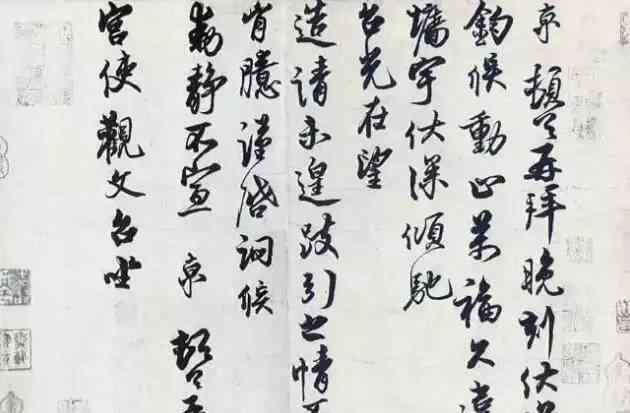 京頓首再拜晚刻伏
鈞候動止萬福久違
墉宇伏深傾馳
台光在望
造請未遑跂引之情不
胷臆謹啓詢候
動靜不宣 京 頓首再
宮使觀文台坐